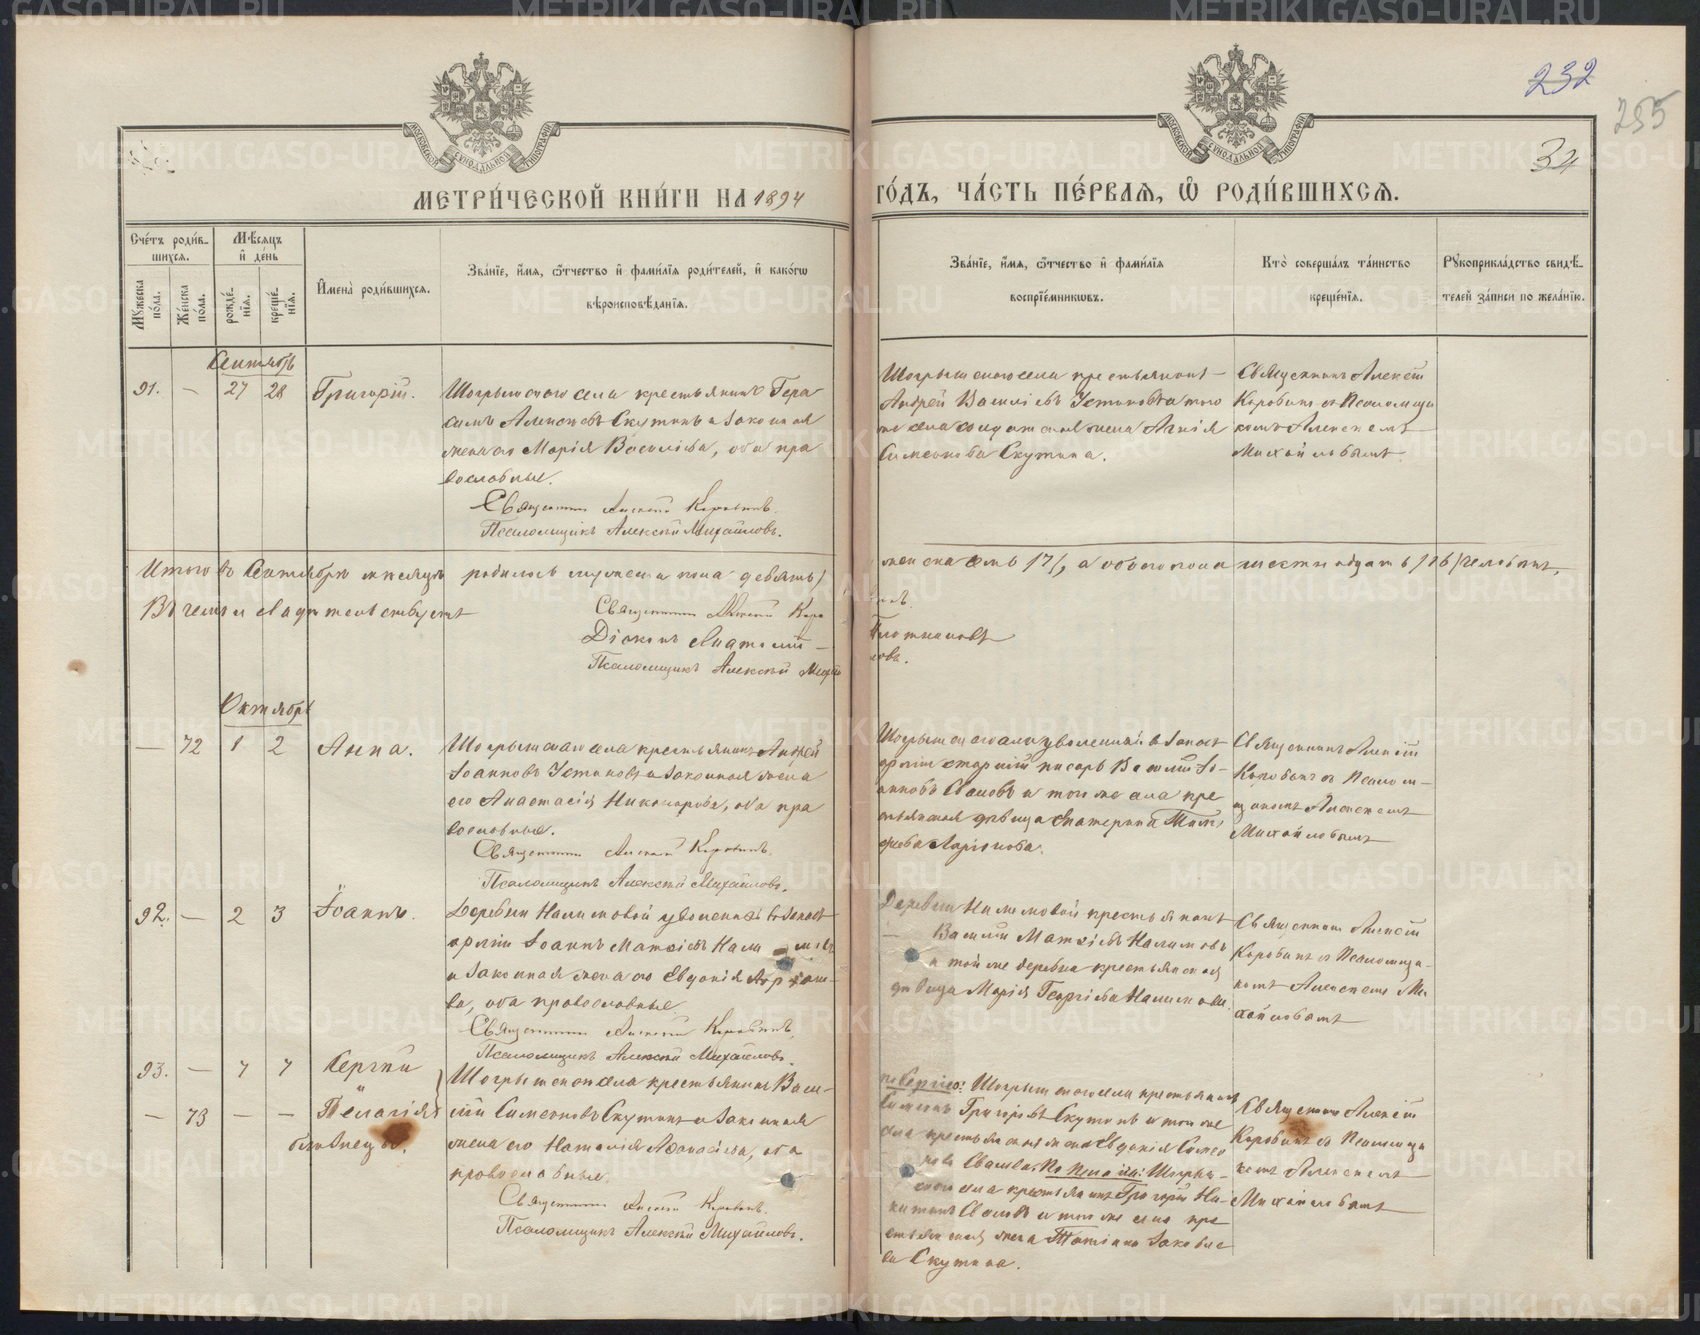 METRIKI.GASO-URAL.RU
232
255
34
МОСКОВСКОЙ СѴНОДАЛЬНОЙ ТИПОГРАФІИ
МОСКОВСКОЙ СѴНОДАЛЬНОЙ ТИПОГРАФІИ
МЕТРИ́ЧЕСКОЙ КНИ́ГИ НА 1894 ГО́ДЪ, ЧА́СТЬ ПЕ́РВАѦ, Ѡ҆ РОДИ́ВШИХСѦ.
Сче́тъ роди́в-
шихся.
Мѣ́сяцъ
и҆ де́нь
Мꙋ́жеска по́ла.
Же́нска по́ла.
рожде́нїя.
креще́нїя.
И҆мена̀ роди́вшихся.
Зва́нїе, и҆́мя, ѻ҆́тчество и҆ фами́лїя роди́телей, и҆ како́гѡ
вѣроисповѣ́данїя.
Зва́нїе, и҆́мя, ѻ҆́тчество и҆ фами́лїя
воспрїе́мникѡвъ.
Кто̀ соверша́лъ та́инство
креще́нїя.
Рꙋкоприкла́дство свидѣ́-
телей за́писи по жела́нїю.
Сентябрь
91. — 27 28 Григорій.
Шогрышскаго села крестьянинъ Гера
симъ Алексѣевъ Скутинъ и законная
жена его Марія Васильева, оба пра
вославные.
Священникъ Алексѣй Коровинъ.
Псаломщикъ Алексѣй Михайловъ.
Шогрышскаго села крестьянинъ
Андрей Василіевъ Устиновъ и того
же села солдатская жена Агнія
Симеонова Скутина.
Священникъ Алексѣй
Коровинъ съ Псаломщи
комъ Алексѣемъ
Михайловымъ
Итого въ Сентябрѣ мѣсяцѣ родилось мужеска пола девять
женска семь /7/, а обоего пола шестнадцать /16/ человѣкъ.
Въ чемъ и свидѣтельствуютъ
Священникъ Алексѣй Коро
винъ.
Діаконъ Анатолій
Плотниковъ
Псаломщикъ Алексѣй Михай
ловъ.
Октябрь
— 72 1 2 Анна.
Шогрышскаго села крестьянинъ Андрей
Іоанновъ Устиновъ и законная жена
его Анастасія Никанорова, оба пра
вославные.
Священникъ Алексѣй Коровинъ.
Псаломщикъ Алексѣй Михайловъ.
Шогрышскаго села уволенный въ запасъ
арміи старшій писарь Василій Іо-
анновъ Сваловъ и того же села кре
стьянская дѣвица Екатерина
Ларіонова.
Священникъ Алексѣй
Коровинъ съ Псалом-
щикомъ Алексѣемъ
Михайловымъ
92. — 2 3 Іоаннъ.
Деревни Налимовой уволенный въ запасъ
арміи Іоаннъ Матѳіевъ Налимовъ
и законная жена его Евдокія
ва, оба православные.
Священникъ Алексѣй Коровинъ.
Псаломщикъ Алексѣй Михайловъ.
Деревни Налимовой крестьянинъ
Василій Матѳіевъ Налимовъ
и той же деревни крестьянская
дѣвица Марія Георгіева Налимова.
Священникъ Алексѣй
Коровинъ съ Псаломщи-
комъ Алексѣемъ Ми
хайловымъ
93. — 7 7 Сергій
"
— 73 — — Пелагія
близнецы.
Шогрышскаго села крестьянинъ Васи-
лій Симеоновъ Скутинъ и законная
жена его Наталія Аѳанасіева, оба
православные.
Священникъ Алексѣй Коровинъ.
Псаломщикъ Алексѣй Михайловъ.
по Сергію: Шогрышскаго села крестьянинъ
Симеонъ Григоріевъ Скутинъ и того же
села крестьянская жена Евдокія Симео
нова Свалова. По Пелагіи: Шогрыш-
скаго села крестьянинъ Григорій Ни-
китинъ Сваловъ и того же села кре
стьянская жена Татіана Іаковле
ва Скутина.
Священникъ Алексѣй
Коровинъ съ Псаломщи
комъ Алексѣемъ
Михайловымъ